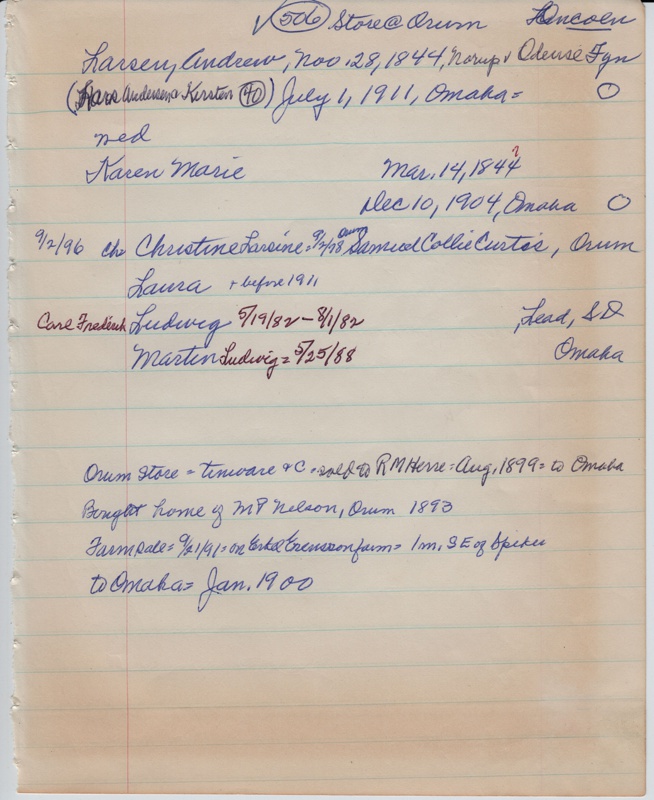 ✓ 506 Store @ Orum Lincoln
Larsen, Andrew, Nov. 28, 1844, Norup v Odense Fyn
(Lars Andersen & Kirsten 40) July 1, 1911, Omaha = O
med
Karen Marie Mar. 14, 1844 ?
Dec 10, 1904, Omaha O
9/2/96 ch Christine Larsine = 9/2/98 Orum Samuel Collie Curtis, Orum
Laura + before 1911
Carl Frederik Ludwig 5/19/82 - 8/1/82 Lead, SD
Martin Ludwig = 5/25/88 Omaha
Orum Store = tinware & C. sold to RM Herre = Aug, 1899 = to Omaha
Bought home of MP Nelson, Orum 1893
Farm sale = 9/21/91 = on farm = 1 m. SE of Spiker
to Omaha = Jan. 1900